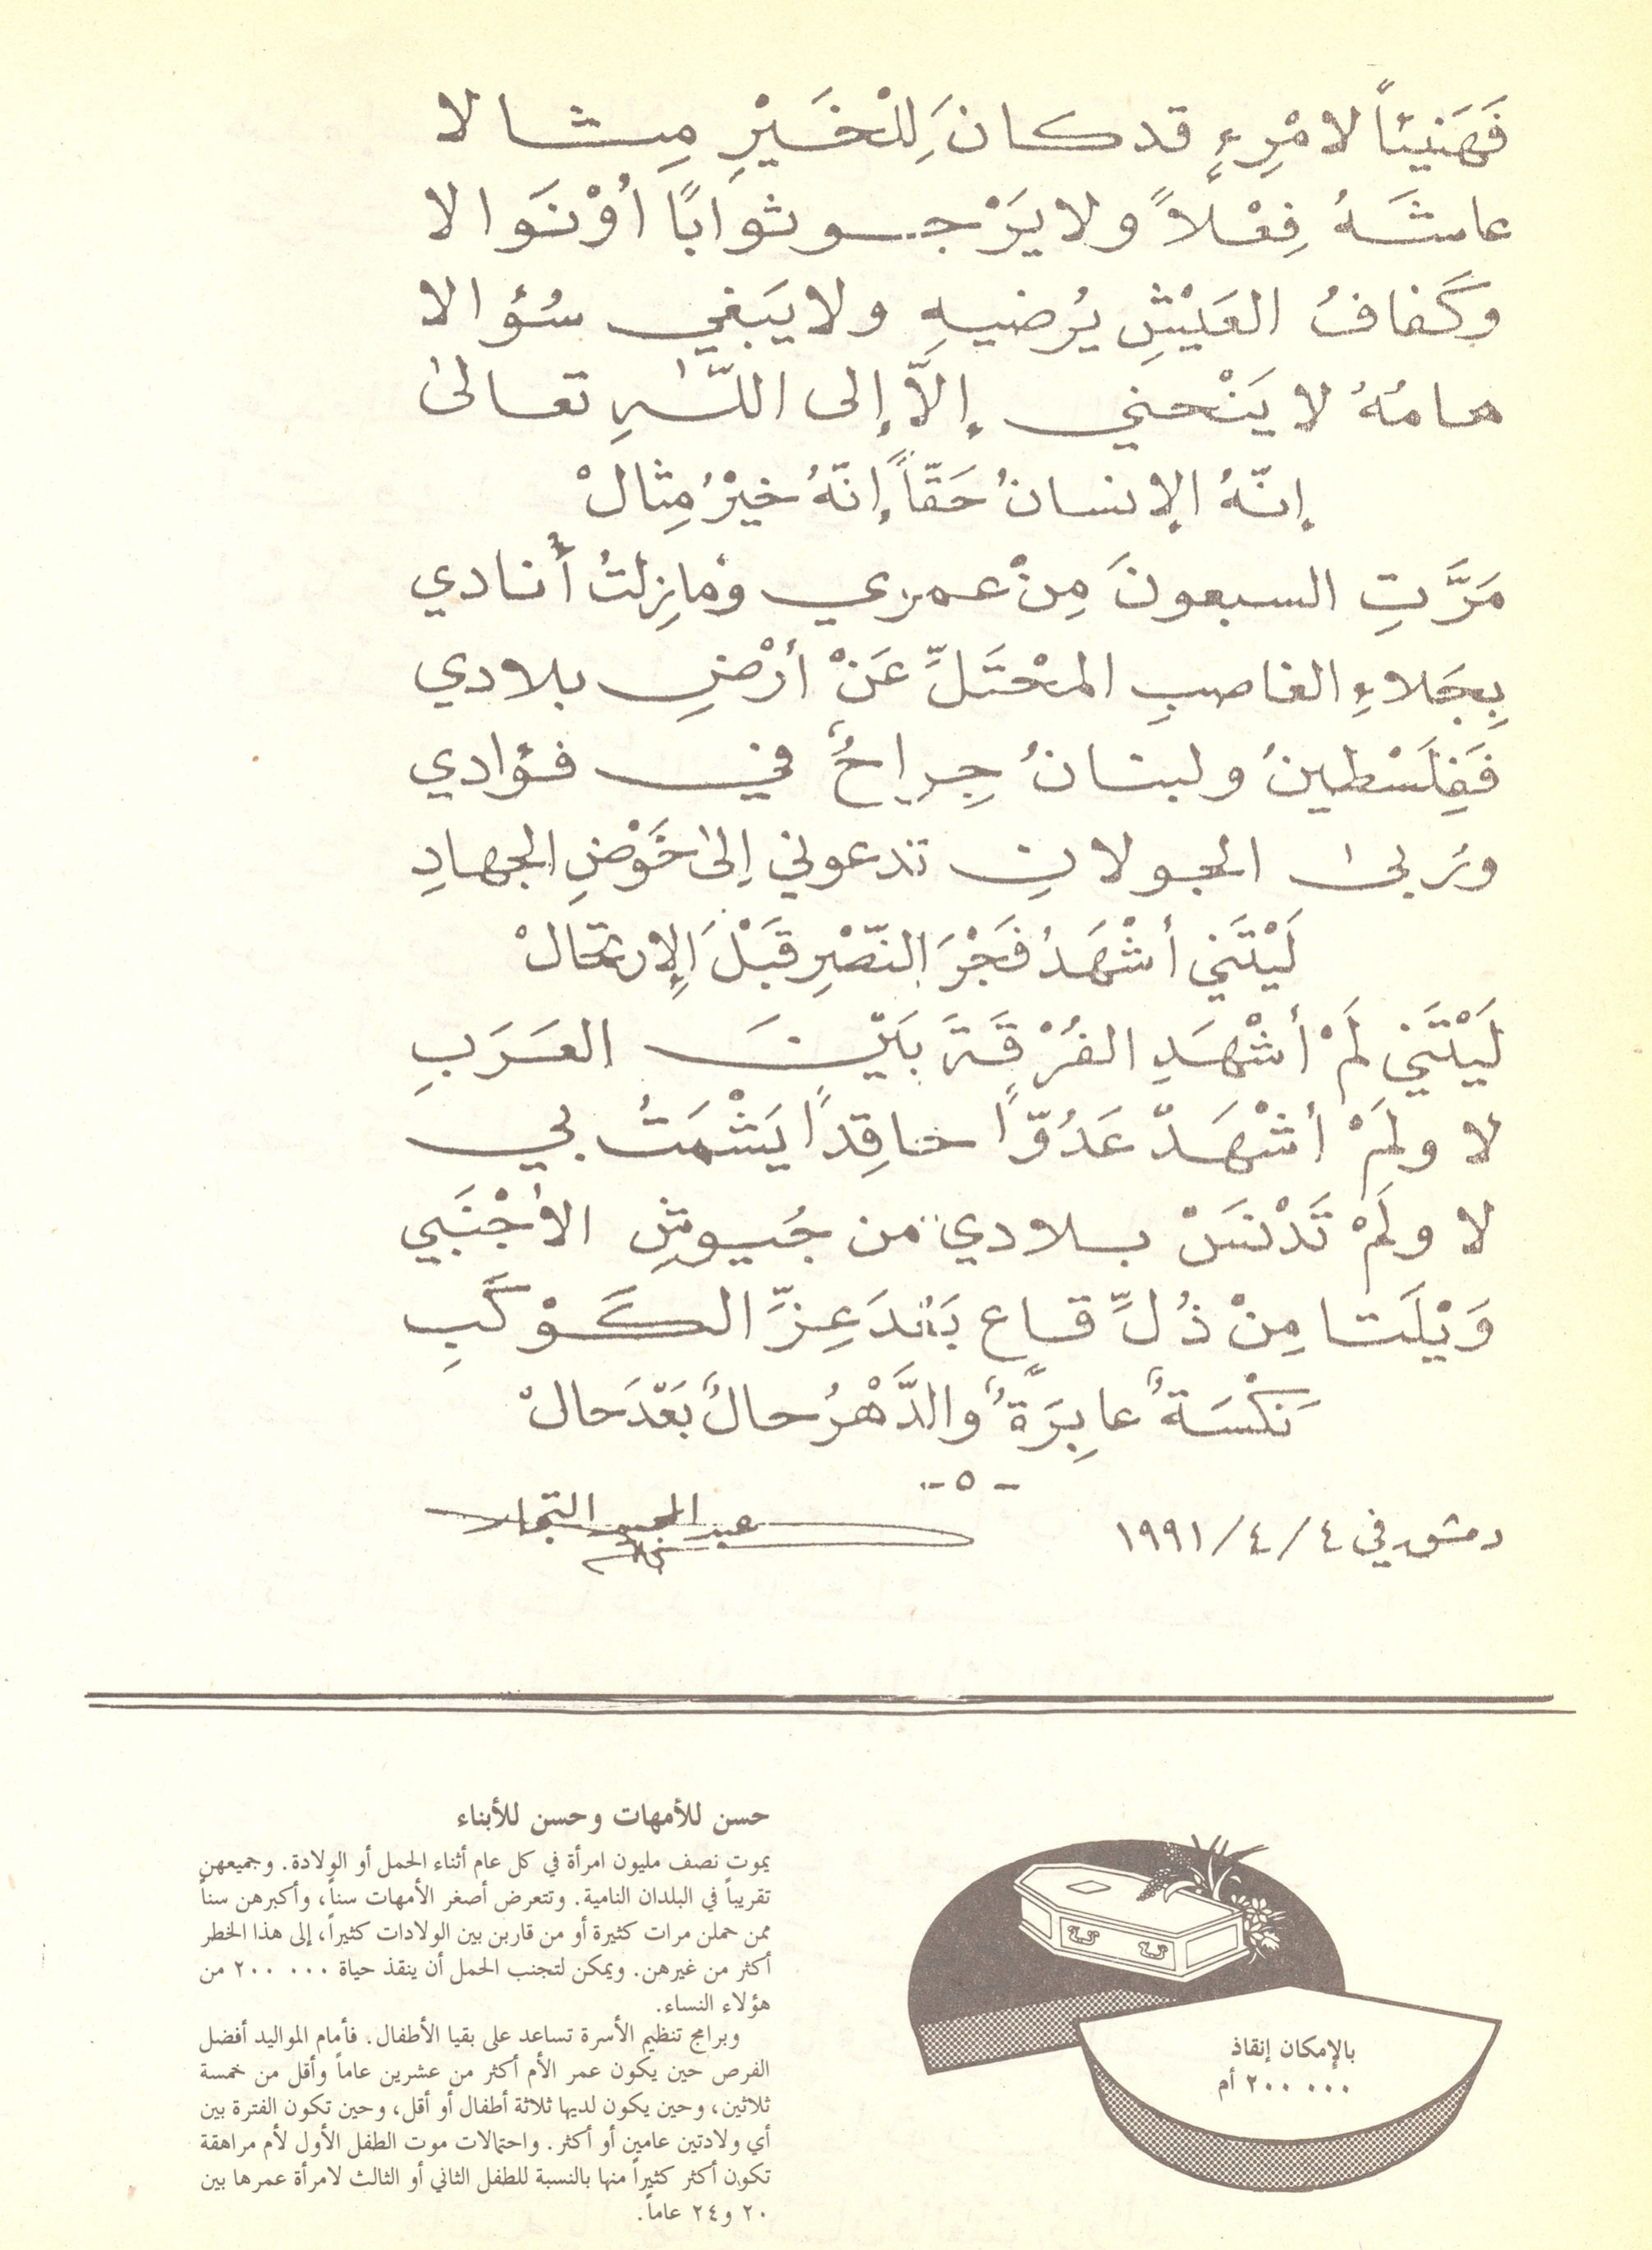 فَهَنيئاً لامْرِءٍ قد كانَ لِلْخَيْرِ مِثالا
عاشَهُ فِعْلاً ولا يَرْجو ثواباً أوْ نَوالا
وكَفافُ العَيْشِ يُرضيهِ ولا يَبغي سُؤالا
هامُهُ لا يَنْحني إلاّ إلى اللّٰهِ تعالىٰ
إنّهُ الإنسانُ حَقّاً إنّهُ خيْرُ مِثالْ
مَرَّتِ السبعونَ مِنْ عمري ومازِلتُ أُنادي
بِجَلاءِ الغاصبِ المحْتَلِّ عَنْ أرْضِ بلادي
فَفِلَسْطينُ ولبنانُ جِراحٌ في فؤادي
ورُبىٰ الجولانِ تدعوني إلىٰ خَوْضِ الجهادِ
لَيْتَني أشْهَدُ فَجْرَ النّصْرِ قَبْلَ الإرتحالْ
لَيْتَني لَمْ أشْهَدِ الفُرْقَةَ بَيْنَ العَرَبِ
لا ولَمْ أشْهَدْ عَدُوّاً حاقِداً يَشْمَتُ بي
لا ولَمْ تَدْنَسْ بلادي من جُيوشِ الأجْنَبي
وَيْلَتا مِنْ ذُلِّ قاعٍ بَعْدَ عِزِّ الكَوْكَبِ
نَكْسَةٌ عابِرَةٌ والدَّهْرُ حالٌ بَعْدَ حالْ
-٥-
دمشق في ٤/٤/١٩٩١
عبد المجيد التجار
حسن للأمهات وحسن للأبناء
يموت نصف مليون امرأة في كل عام أثناء الحمل أو الولادة. وجميعهن
تقريباً في البلدان النامية. وتتعرض أصغر الأمهات سناً، وأكبرهن سناً
ممن حملن مرات كثيرة أو من قاربن بين الولادات كثيراً، إلى هذا الخطر
أكثر من غيرهن. ويمكن لتجنب الحمل أن ينقذ حياة ٢٠٠ ٠٠٠ من
هؤلاء النساء.
وبرامج تنظيم الأسرة تساعد على بقيا الأطفال. فأمام المواليد أفضل
الفرص حين يكون عمر الأم أكثر من عشرين عاماً وأقل من خمسة
ثلاثين، وحين يكون لديها ثلاثة أطفال أو أقل، وحين تكون الفترة بين
أي ولادتين عامين أو أكثر. واحتمالات موت الطفل الأول لأم مراهقة
تكون أكثر كثيراً منها بالنسبة للطفل الثاني أو الثالث لامرأة عمرها بين
٢٠ و٢٤ عاماً.
بالإمكان إنقاذ
٢٠٠ ٠٠٠ أم